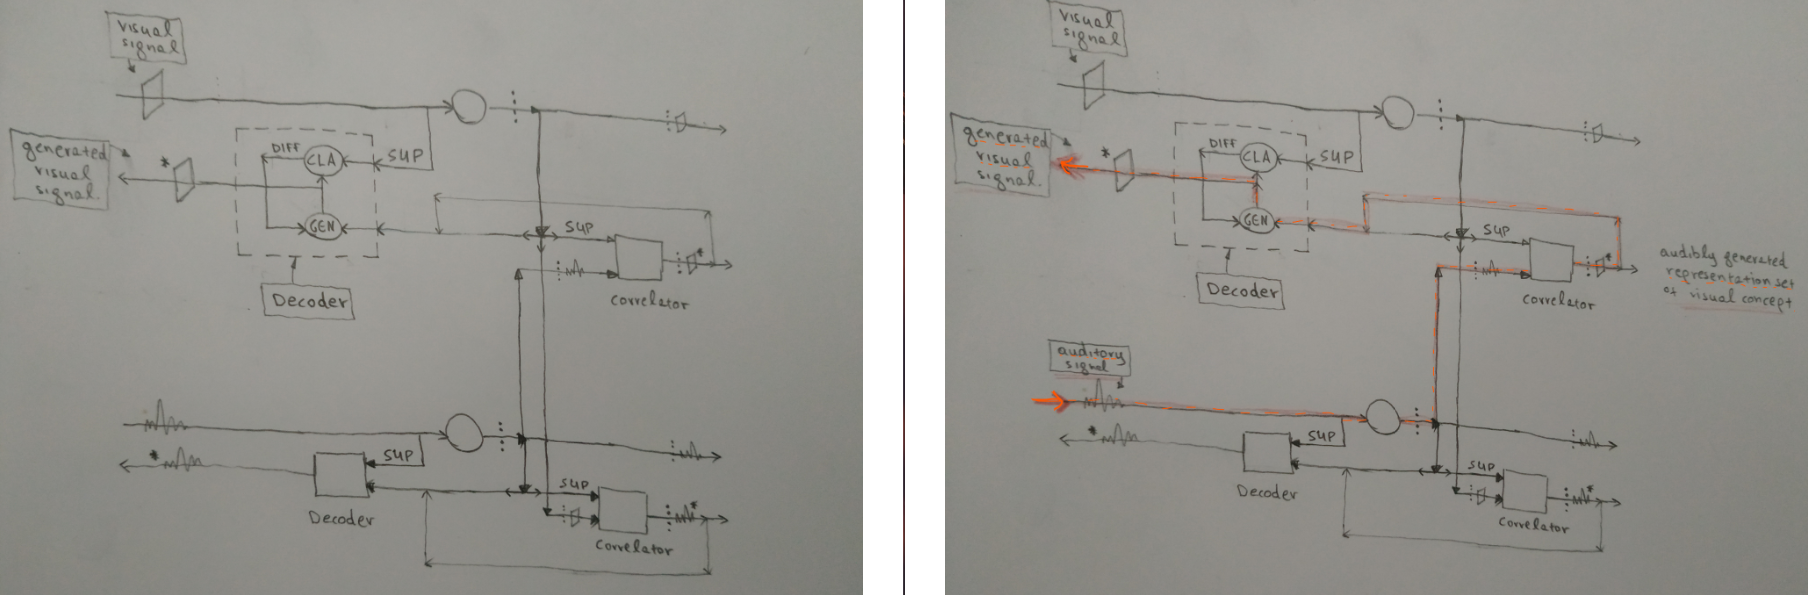 visual
signal
generated
visual
signal.
*
DIFF
CLA
SUP
GEN
SUP
*
Decoder
Correlator
*
SUP
Decoder
SUP
*
Correlator
visual
signal
generated
visual
signal.
*
DIFF
CLA
SUP
GEN
SUP
*
Decoder
Correlator
audibly generated
representation set
of visual concept
auditory
signal
*
SUP
Decoder
SUP
*
Correlator